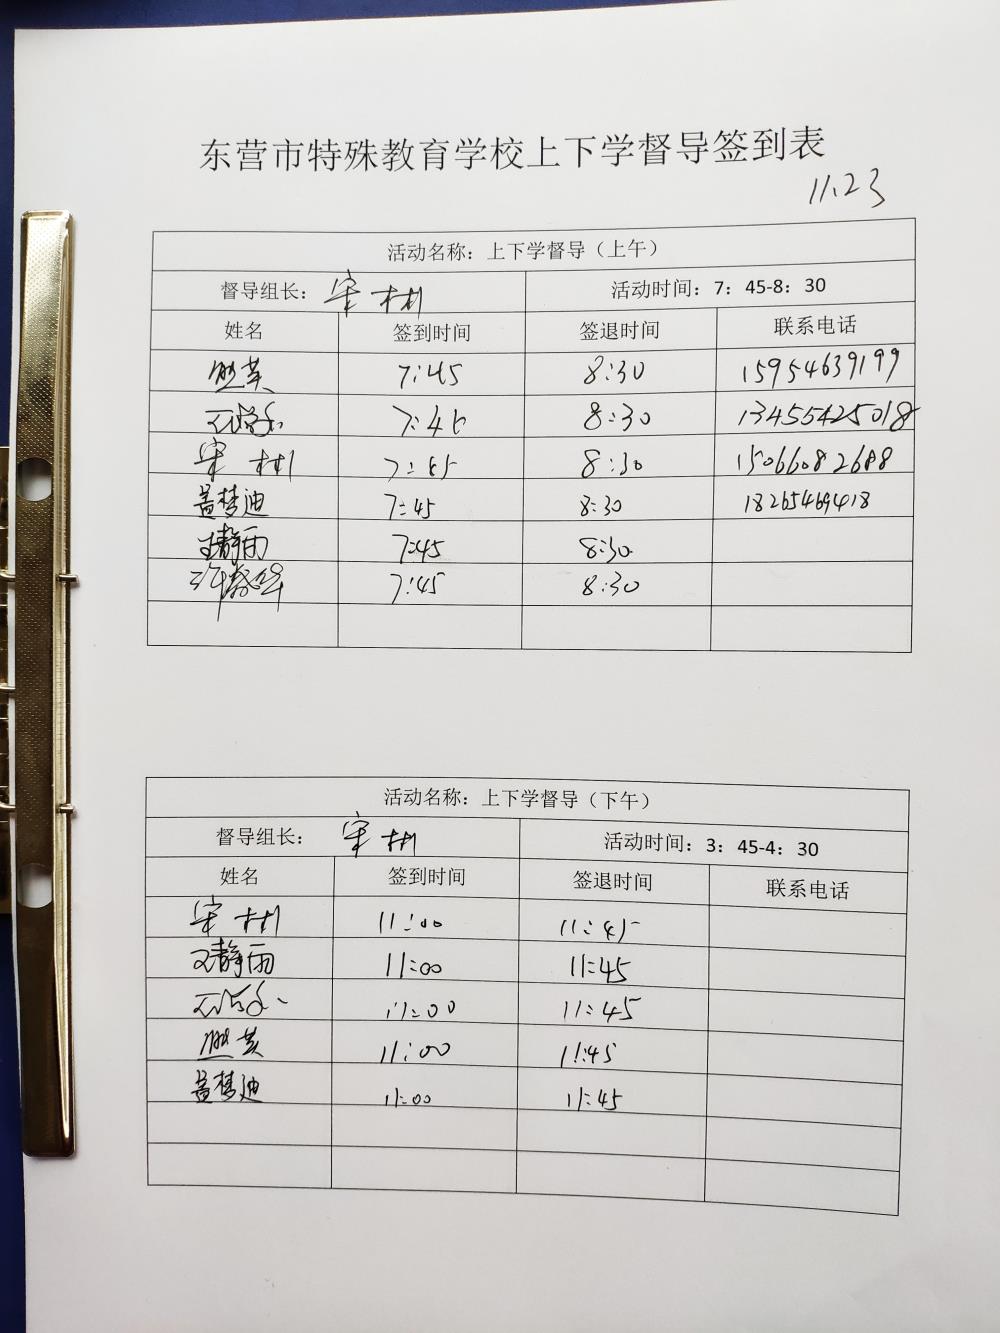 东营市特殊教育学校上下学督导签到表
11.23
活动名称：上下学督导（上午）
督导组长： 宋彬 活动时间：7：45-8：30
姓名 签到时间 签退时间 联系电话
7:45 8:30 15954639199
7:46 8:30 13455425018
宋彬 7:45 8:30 15066082688
盖梦迪 7:45 8:30 18265469418
王静雨 7:45 8:30
7:45 8:30
活动名称：上下学督导（下午）
督导组长： 宋彬 活动时间：3：45-4：30
姓名 签到时间 签退时间 联系电话
宋彬 11:00 11:45
王静雨 11:00 11:45
11:00 11:45
11:00 11:45
盖梦迪 11:00 11:45